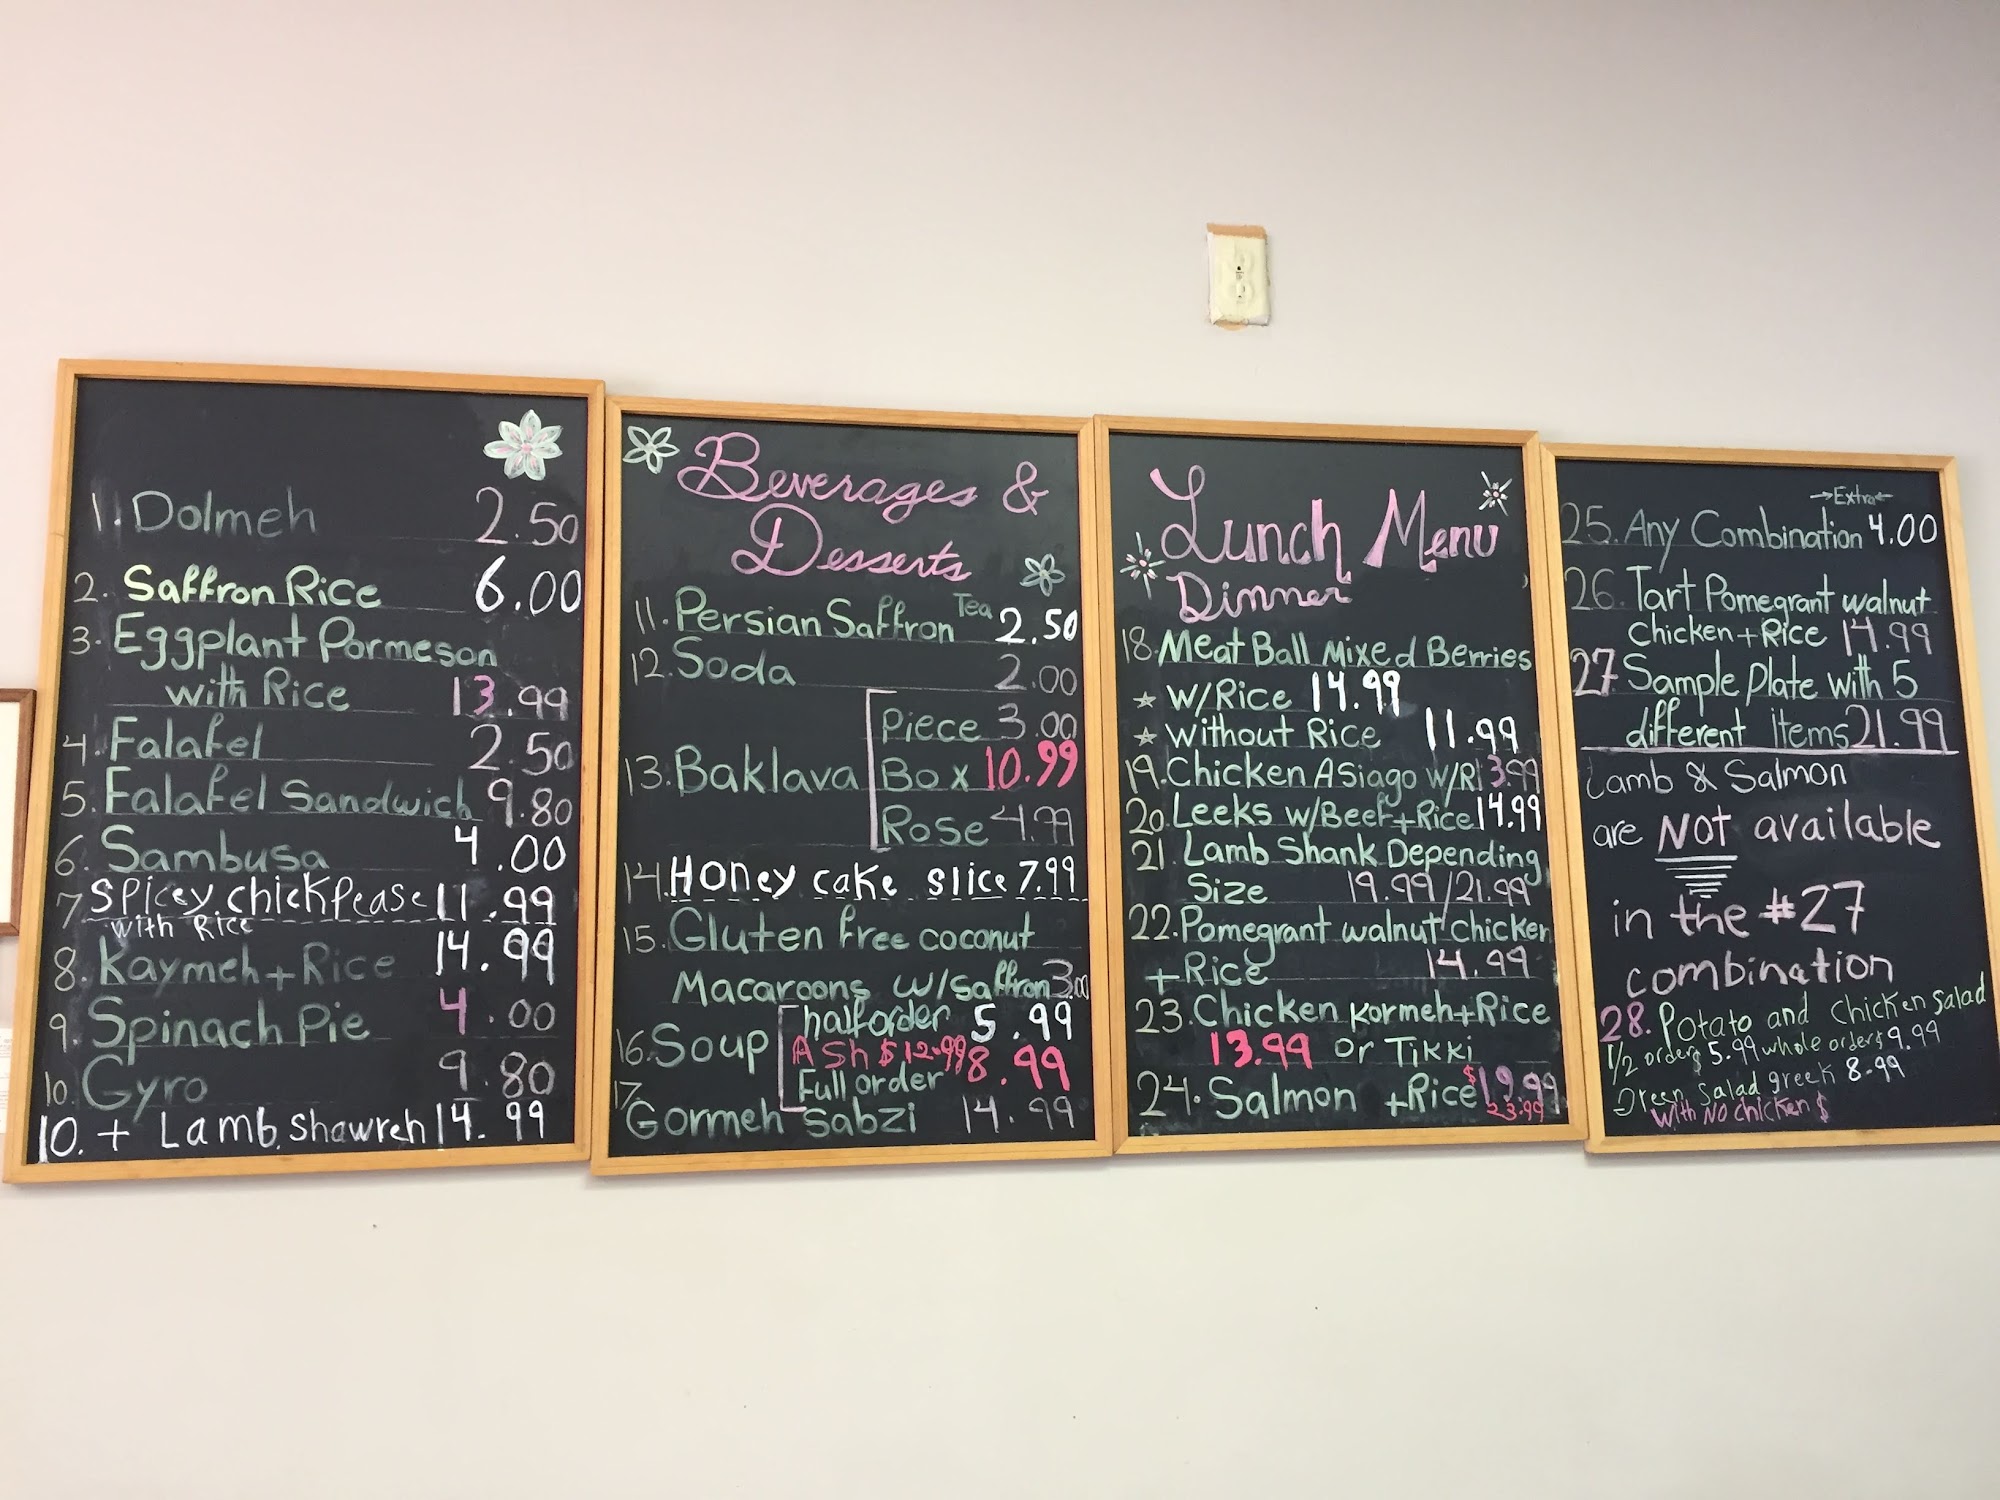 1. Dolmeh 2.50
2. Saffron Rice 6.00
3. Eggplant Parmeson
with Rice 13.99
4. Falafel 2.50
5. Falafel Sandwich 9.80
6. Sambusa 4.00
7 Spicey chickpease 11.99
with Rice
8. Kaymeh + Rice 14.99
9. Spinach Pie 4.00
10. Gyro 9.80
10. + Lamb. Shawreh 14.99
Beverages &
Desserts
11. Persian Saffron Tea 2.50
12. Soda 2.00
Piece 3.00
13. Baklava Box 10.99
Rose 4.99
14. Honey cake slice 7.99
15. Gluten free coconut
Macaroons w/saffron 3.00
16. Soup half order 5.99
ASh $12.99 8.99
Full order
17.
Gormeh Sabzi 14.99
Lunch Menu
Dinner
18. Meat Ball Mixed Berries
w/Rice 14.99
without Rice 11.99
19. Chicken Asiago w/R 13.99
20. Leeks w/Beef + Rice 14.99
21 Lamb Shank Depending
Size 19.99/21.99
22. Pomegrant walnut chicken
+ Rice 14.99
23. Chicken Kormeh + Rice
13.99 or Tikki
24. Salmon + Rice $19.99
23.99
→Extra←
25. Any Combination 4.00
26. Tart Pomegrant walnut
chicken + Rice 14.99
27 Sample Plate with 5
different items 21.99
Lamb & Salmon
are NOT available
in the #27
combination
28. Potato and chicken salad
1/2 order $ 5.99 whole order $ 9.99
Green Salad greek 8.99
with No chicken $